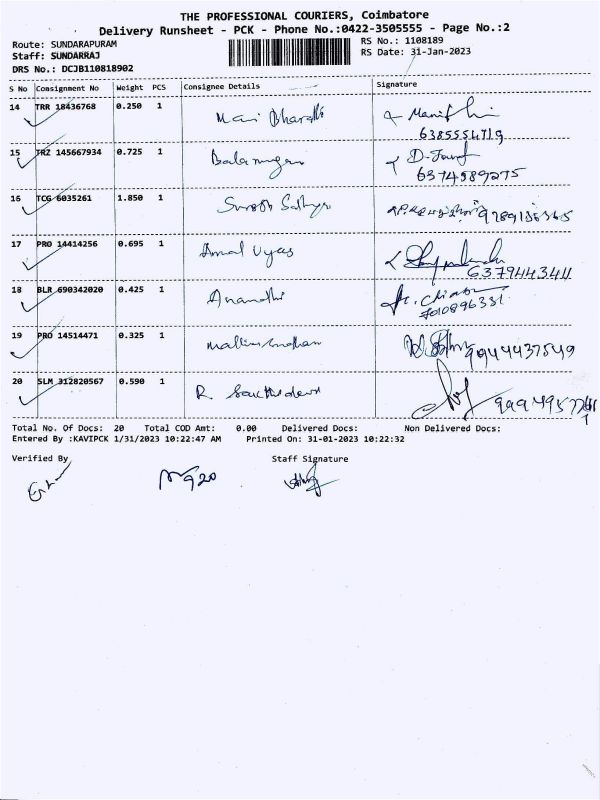 THE PROFESSIONAL COURIERS, Coimbatore
Delivery Runsheet - PCK - Phone No.:0422-3505555 - Page No.:2
Route: SUNDARAPURAM RS No.: 1108189
Staff: SUNDARRAJ RS Date: 31-Jan-2023
DRS No.: DCJB110818902
S No Consignment No Weight PCS Consignee Details Signature
14 TRR 18436768 0.250 1 Mani Bharathi
6385554719
15 TRZ 145667934 0.725 1 Balamurugan
6374589275
16 TCG 6035261 1.850 1 Suresh 9789136365
17 PRO 14414256 0.695 1 Amal Vyas
6379443411
18 BLR 690342020 0.425 1 Anandhi
7010896331
19 PRO 14514471 0.325 1 9944437549
20 SLM 312820567 0.590 1 R.
Total No. Of Docs: 20 Total COD Amt: 0.00 Delivered Docs: Non Delivered Docs:
Entered By :KAVIPCK 1/31/2023 10:22:47 AM Printed On: 31-01-2023 10:22:32
Verified By Staff Signature